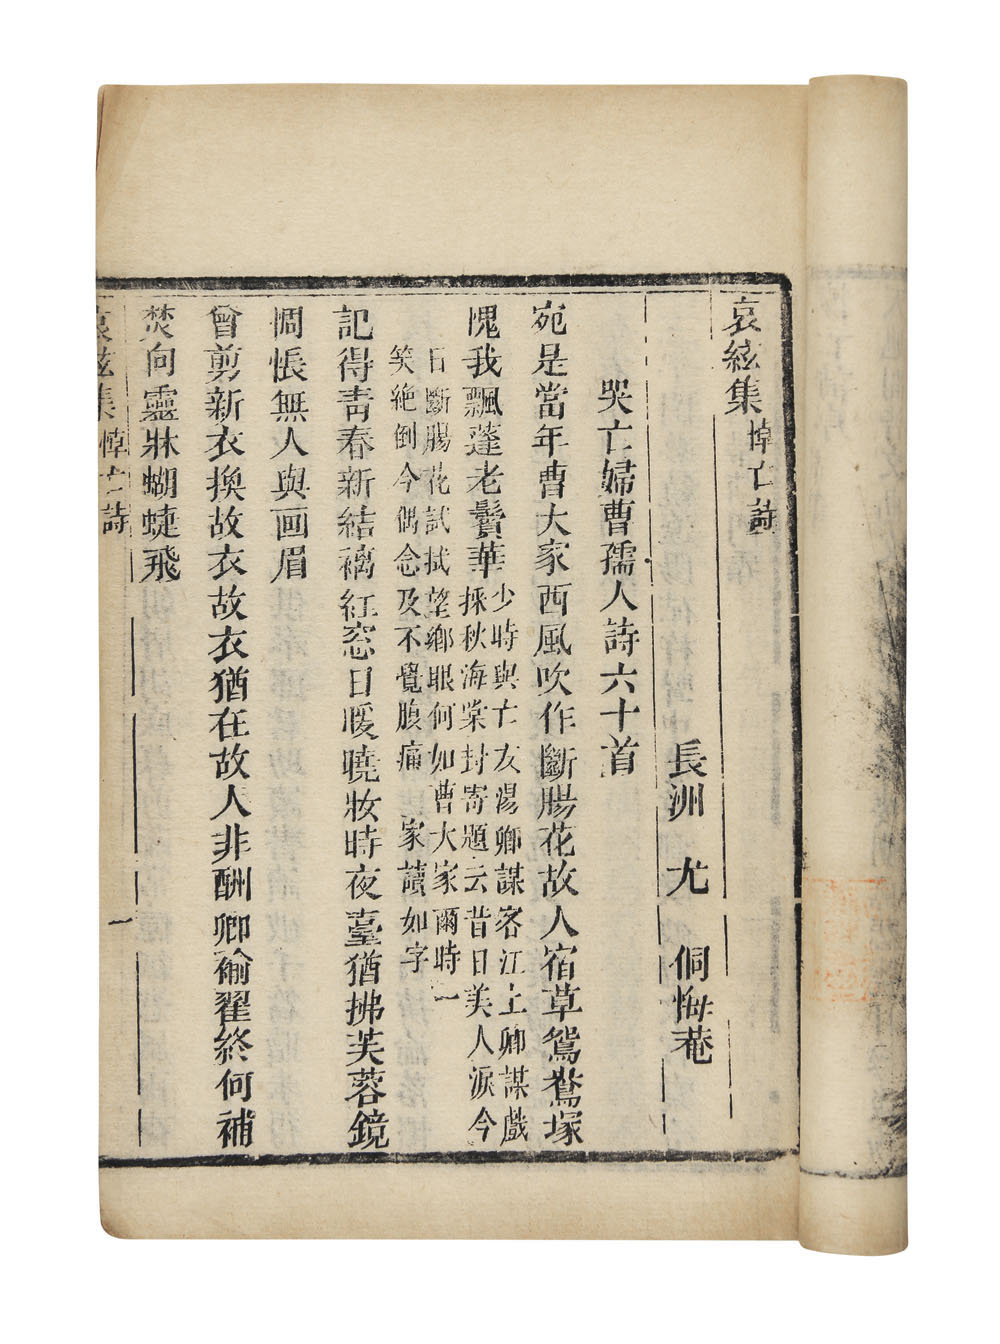 哀絃集 悼亡詩
長洲 尤 侗 悔菴
哭亡婦曹孺人詩六十首
宛是當年曹大家西風吹作斷腸花故人宿草鴛鴦塚
愧我飄蓬老鬢華 少時與亡友湯卿謀客江上卿謀戲
採秋海棠封寄題云昔日美人淚今
日斷腸花試拭望鄉眼何如曹大家爾時一
笑絶倒今偶念及不覺腹痛 家讀如字
記得青春新結褵紅窓日暖曉妝時夜臺猶拂芙蓉鏡
惆悵無人與画眉
曾剪新衣換故衣故衣猶在故人非酬卿褕翟終何補
焚向靈牀蝴蝶飛
哀絃集 悼亡詩 一